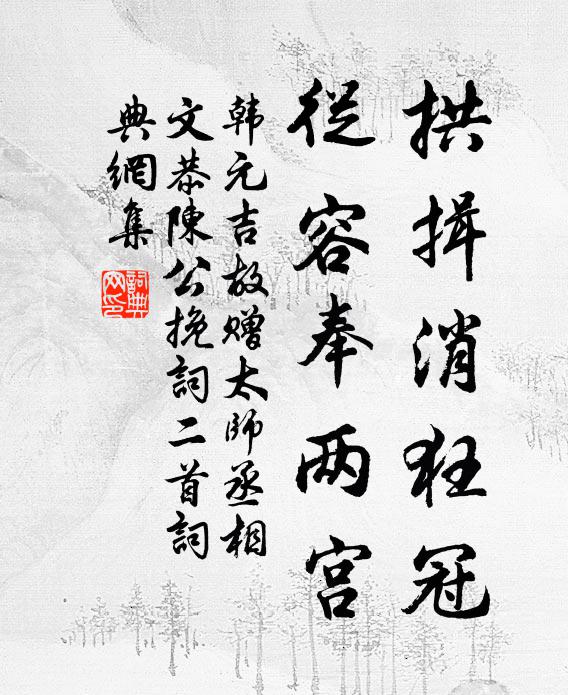 拱揖消狂冠
從容奉两宫
韩元吉故赠太师丞相
文恭陳公挽詞二首詞
典網集
詞典
网印